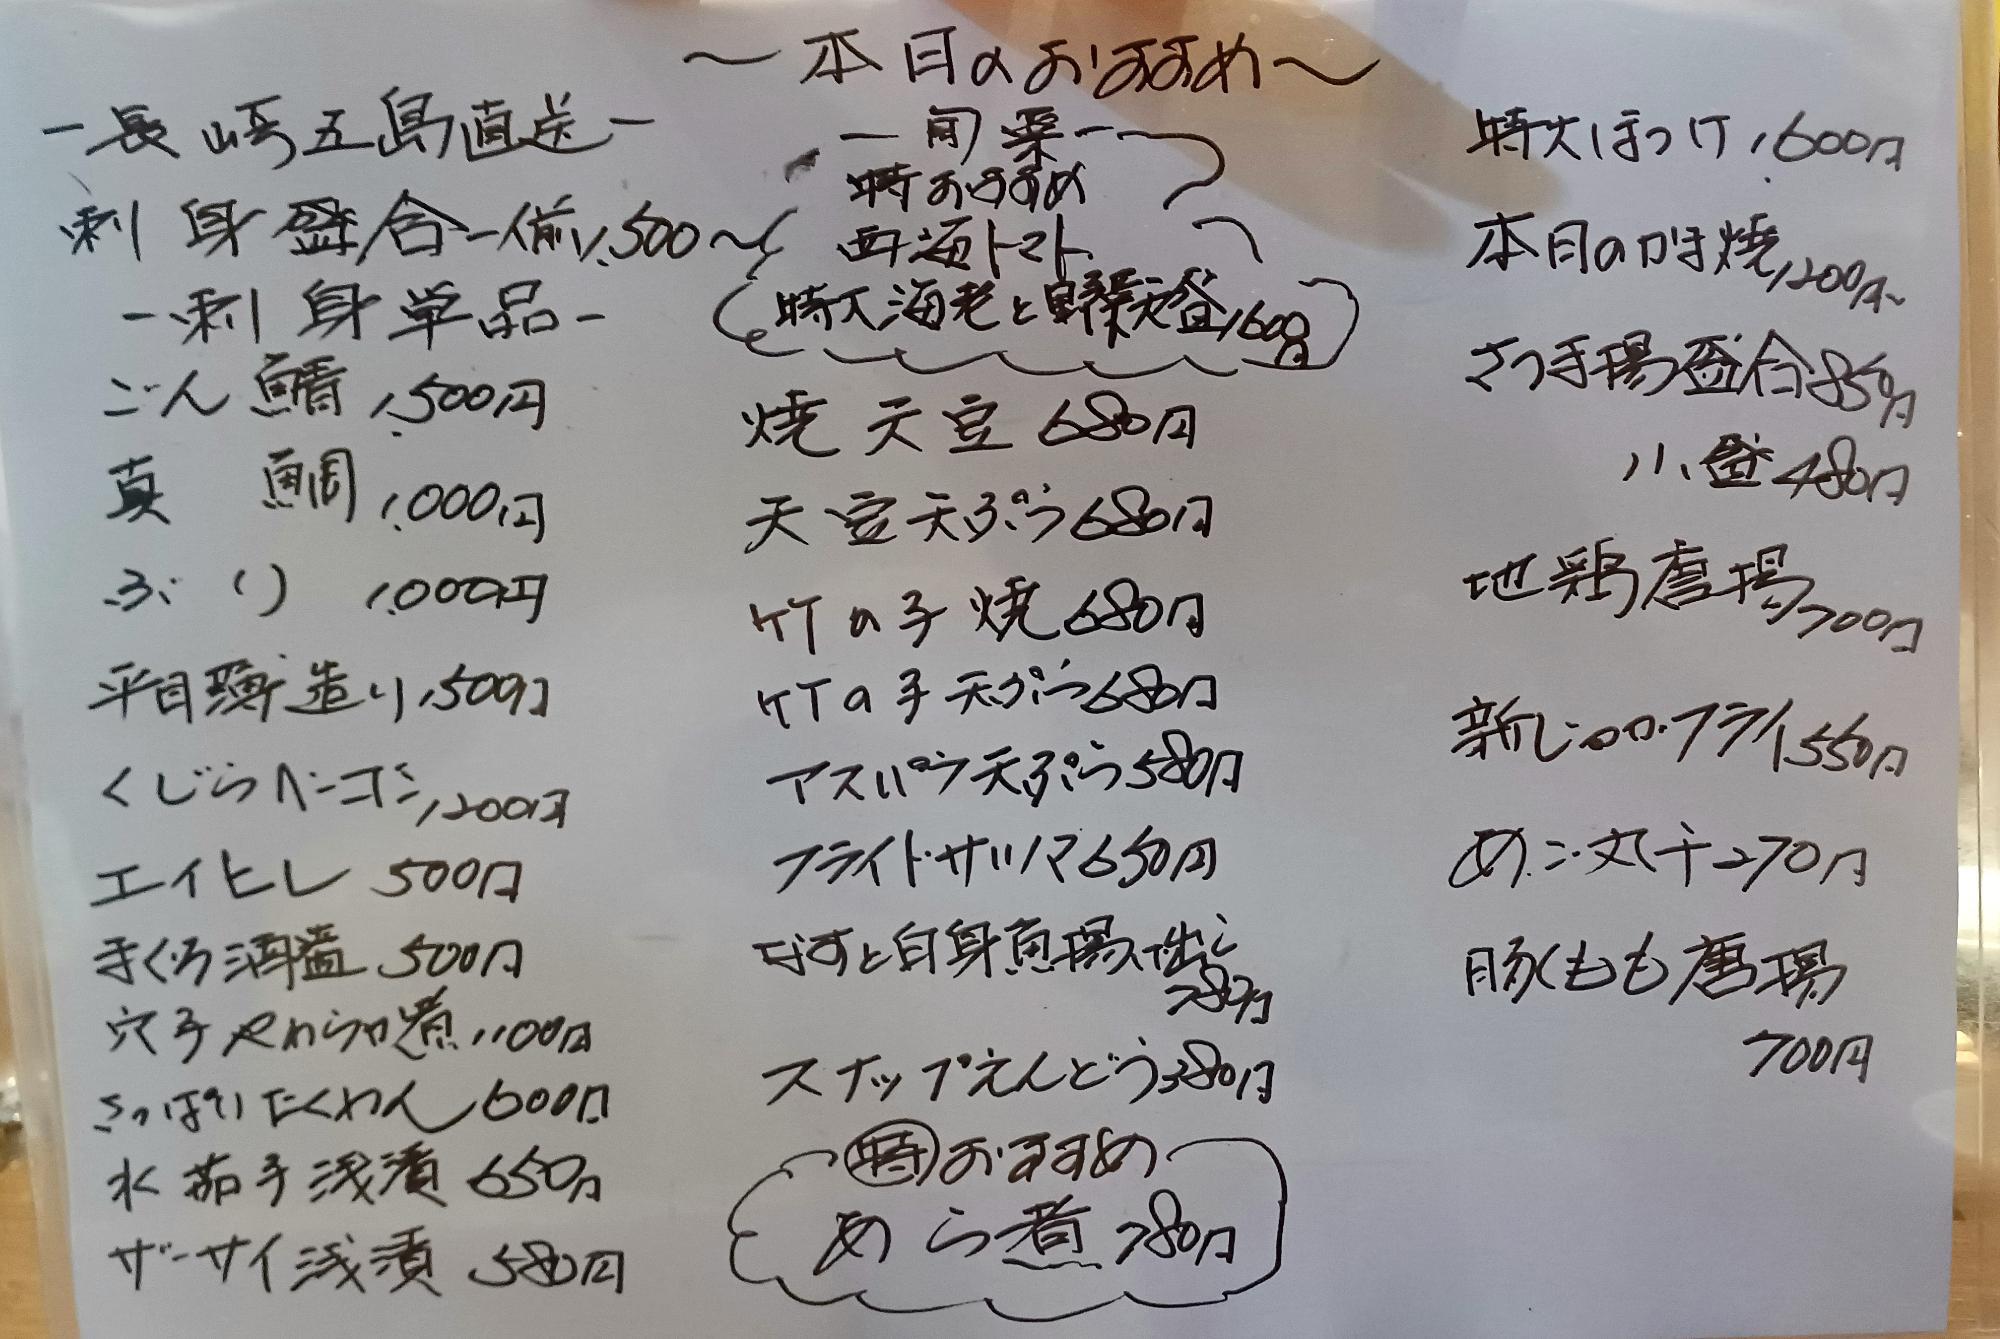 〜本日のおすすめ〜
-長崎五島直送-
刺身盛合一人前1,500〜
-刺身単品-
ごん鯖 1,500円
真鯛 1,000円
ぶり 1,000円
平目薄造り1,500円
くじらベーコン1,200円
エイヒレ 500円
まぐろ酒盗 500円
穴子やわらか煮1,100円
さっぱりたくわん600円
水茄子浅漬 650円
ザーサイ浅漬 580円
-旬菜-
特おすすめ
西海トマト
特大海老と野菜天盛1,600円
焼天豆 680円
天豆天ぷら680円
竹の子焼680円
竹の子天ぷら680円
アスパラ天ぷら580円
フライドサツマ650円
なすと白身魚揚げ出し
780円
スナップえんどう380円
特おすすめ
あら煮780円
特大ほっけ1,600円
本日のかま焼1,200円〜
さつま揚盛合850円
小盛480円
地鶏唐揚700円
新じゃがフライ550円
めざし丸干270円
豚くもも唐揚
700円